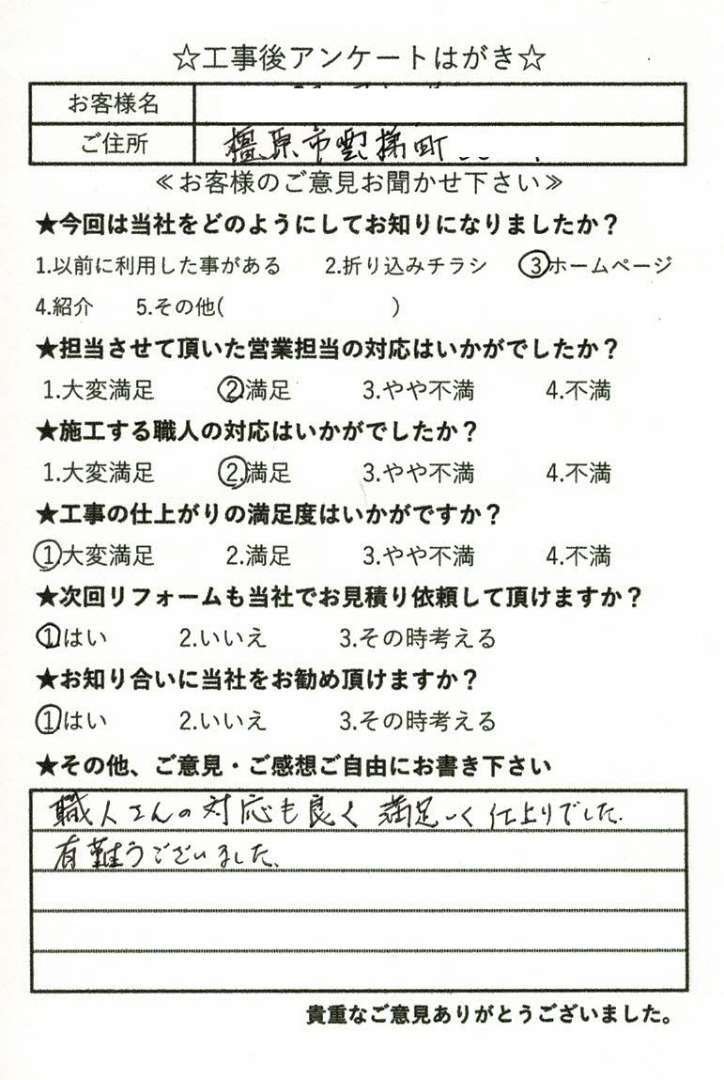 ☆工事後アンケートはがき☆
お客様名
ご住所 橿原市雲梯町
≪お客様のご意見お聞かせ下さい≫
★今回は当社をどのようにしてお知りになりましたか？
1.以前に利用した事がある 2.折り込みチラシ 3ホームページ
4.紹介 5.その他( )
★担当させて頂いた営業担当の対応はいかがでしたか？
1.大変満足 2.満足 3.やや不満 4.不満
★施工する職人の対応はいかがでしたか？
1.大変満足 2.満足 3.やや不満 4.不満
★工事の仕上がりの満足度はいかがですか？
1大変満足 2.満足 3.やや不満 4.不満
★次回リフォームも当社でお見積り依頼して頂けますか？
1はい 2.いいえ 3.その時考える
★お知り合いに当社をお勧め頂けますか？
1はい 2.いいえ 3.その時考える
★その他、ご意見・ご感想ご自由にお書き下さい
職人さんの対応も良く 満足いく仕上りでした.
有難うございました.
貴重なご意見ありがとうございました。